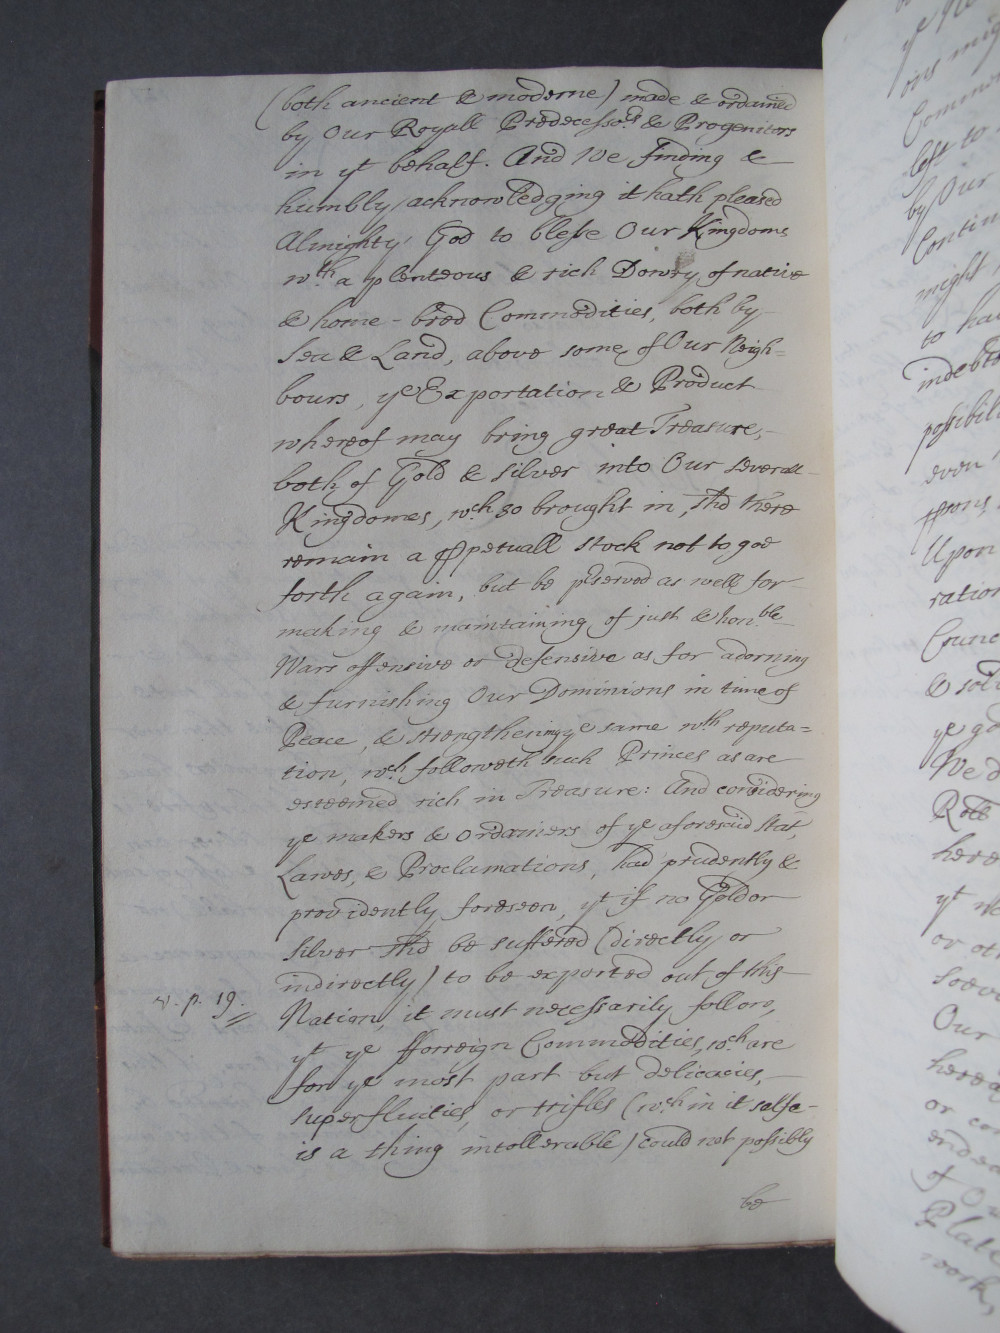 (both ancient & moderne) made & ordained
by Our Royall Predecessors & Progenitors
in yt behalf. And We finding &
humbly acknowledging it hath pleased
Almighty God to blesse Our Kingdoms
wth a plenteous & rich Dowry of native
& home-bred Commodities, both by
Sea & Land, above some of Our Neigh=
bours, ye Exportation & Product
whereof may bring great Treasure,
both of Gold & silver into Our severall
Kingdomes, wch so brought in, shd there
remain a ppetuall stock not to goe
forth again, but be pserved as well for
making & maintaining of just & honble
Wars offensive or defensive as for adorning
& furnishing Our Dominions in time of
Peace, & strengthening ye same wth reputa=
tion, wch followeth such Princes as are
esteemed rich in Treasure: And considering
ye makers & Ordainers of ye aforesaid Stat,
Lawes, & Proclamations, had prudently &
providently foreseen, yt if no Gold or
silver shd be suffered (directly or
indirectly) to be exported out of this
v. p. 19.
Nation, it must necessarily follow,
yt ye fforreign Commodities, wch are
for ye most part but delicacies,
superfluities, or trifles (wch in it selfe
is a thing intollerable) could not possibly
be
by Our
Contin
might
to ha
indebt
possibil
even
Upon
ration
Counc
& sol
ye go
We d
here
or ot
soev
Our
or co
of O
Plate
work,